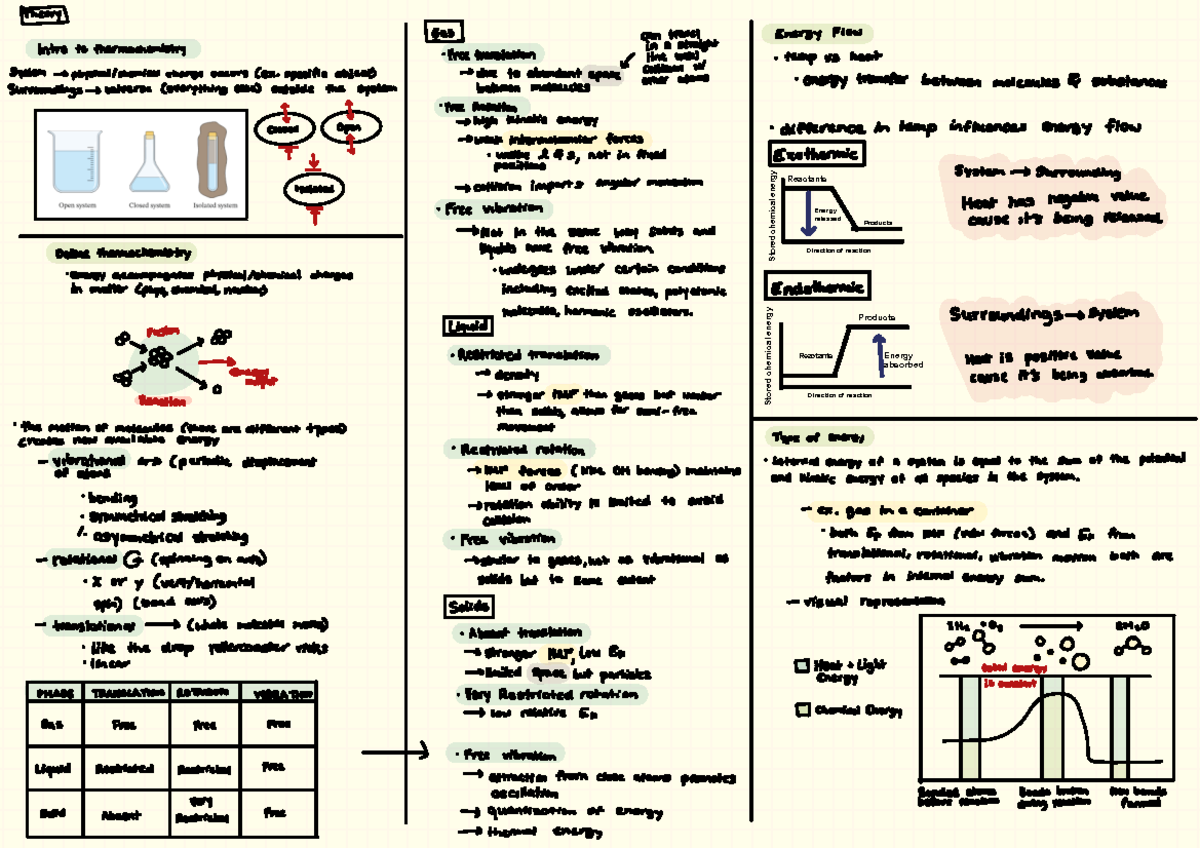 Theory
Intro to thermochemistry
System → physical/chemical change occurs (ex. specific object)
Surroundings → universe (everything else) outside the system
Open system
Closed system
Isolated system
Closed
Open
Isolated
Define thermochemistry
· Energy accompanies physical/chemical changes
in matter (phys, chemical, nuclear)
Fusion
Reaction
· The motion of molecules (there are different types)
creates new available energy
- vibrational (periodic displacement
of atoms
· bending
· symmetrical stretching
· asymmetrical stretching
- rotational (spinning on axis)
· X or y (vert/horizontal
spin) (bond axis)
- translational → (whole molecule moves)
· like the drop rollercoaster rides
· linear
PHASE TRANSLATION ROTATION VIBRATION
Gas Free Free Free
Liquid Restricted Restricted Free
Solid Absent Very Restricted Free
Gas
· Free translation
→ due to abundant space
between molecules
can travel
in a straight
line until
collision w/
other atoms
· Free Rotation
→ high kinetic energy
→ weak intermolecular forces
· unlike l & s, not in fixed
positions
→ collision imparts angular momentum
· Free vibration
→ Not in the same way solids and
liquids have free vibration
· undergoes under certain conditions
including excited states, polyatomic
molecules, harmonic oscillators.
Liquid
· Restricted translation
→ density
→ stronger IMF than gases but weaker
than solids, allows for semi-free
movement
· Restricted rotation
→ IMF forces (like OH bonding) maintains
level of order
→ rotation ability is limited to avoid
collision
· Free vibration
→ similar to gases, but as vibrational as
solids but to some extent
Solids
· Absent translation
→ stronger IMF, low Ek
→ limited space but particles
· Very Restricted rotation
→ low relative Ek
· Free vibration
→ attraction from close atoms promotes
oscillation
→ quantization of energy
→ thermal energy
Energy Flow
· temp vs heat
· energy transfer between molecules & substances
· difference in temp influences energy flow
Exothermic
Stored chemical energy
Reactants
Energy
released
Products
Direction of reaction
System → Surrounding
Heat has negative value
cause it's being released
Endothermic
Stored chemical energy
Products
Reactants
Energy
absorbed
Direction of reaction
Surroundings → System
Heat is positive value
cause it's being absorbed
Type of energy
· Internal energy of a system is equal to the sum of the potential
and kinetic energy of all species in the system.
- ex. gas in a container
· both Ep from IMF (vdw forces) and Ek from
translational, rotational, vibration motion both are
factors in internal energy sum.
- visual representation
Heat + Light
Energy
Chemical Energy
2H₂ + O₂ → 2H₂O
total energy
is constant
Bonded atoms
before reaction
Bonds broken
during reaction
New bonds
formed